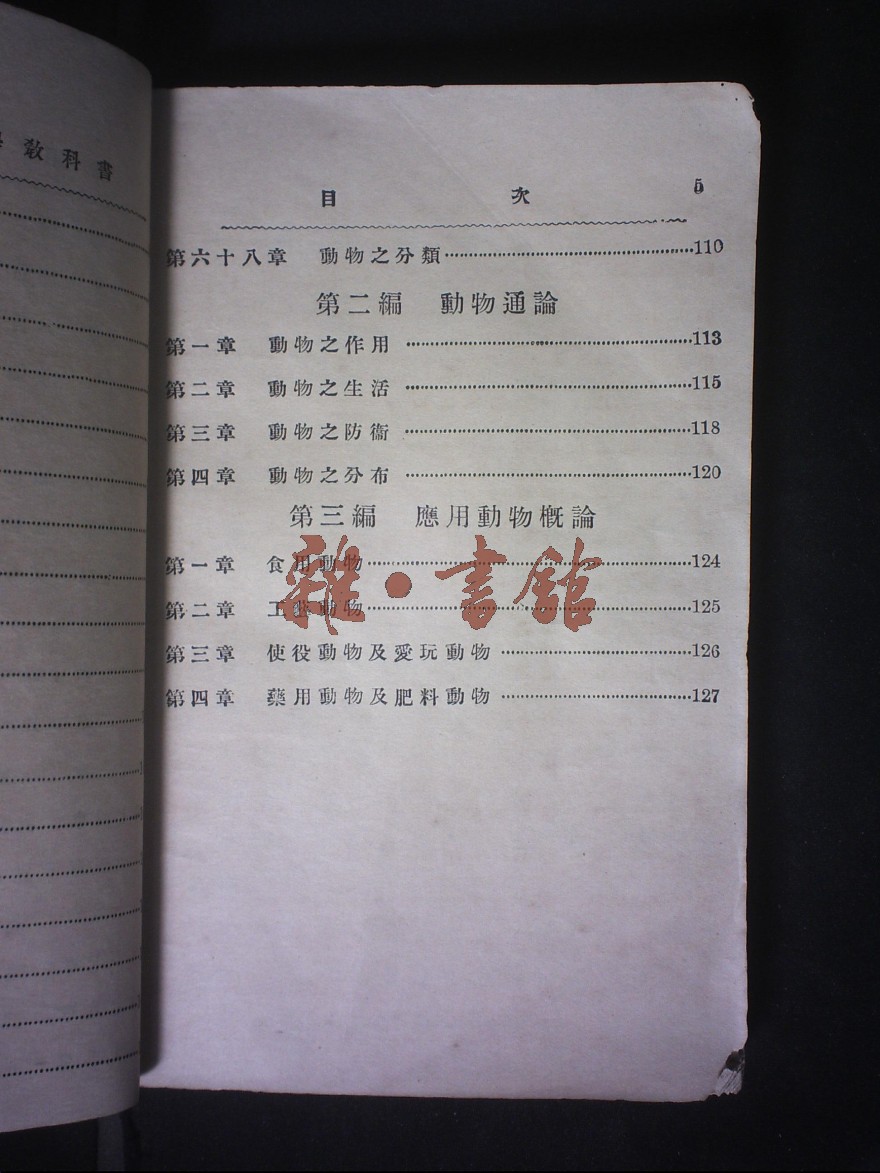 教科書
目 次 5
第六十八章 動物之分類……110
第二編 動物通論
第一章 動物之作用……113
第二章 動物之生活……115
第三章 動物之防衞……118
第四章 動物之分布……120
第三編 應用動物概論
第一章 食用動物……124
第二章 工藝動物……125
第三章 使役動物及愛玩動物……126
第四章 藥用動物及肥料動物……127
雜·書館